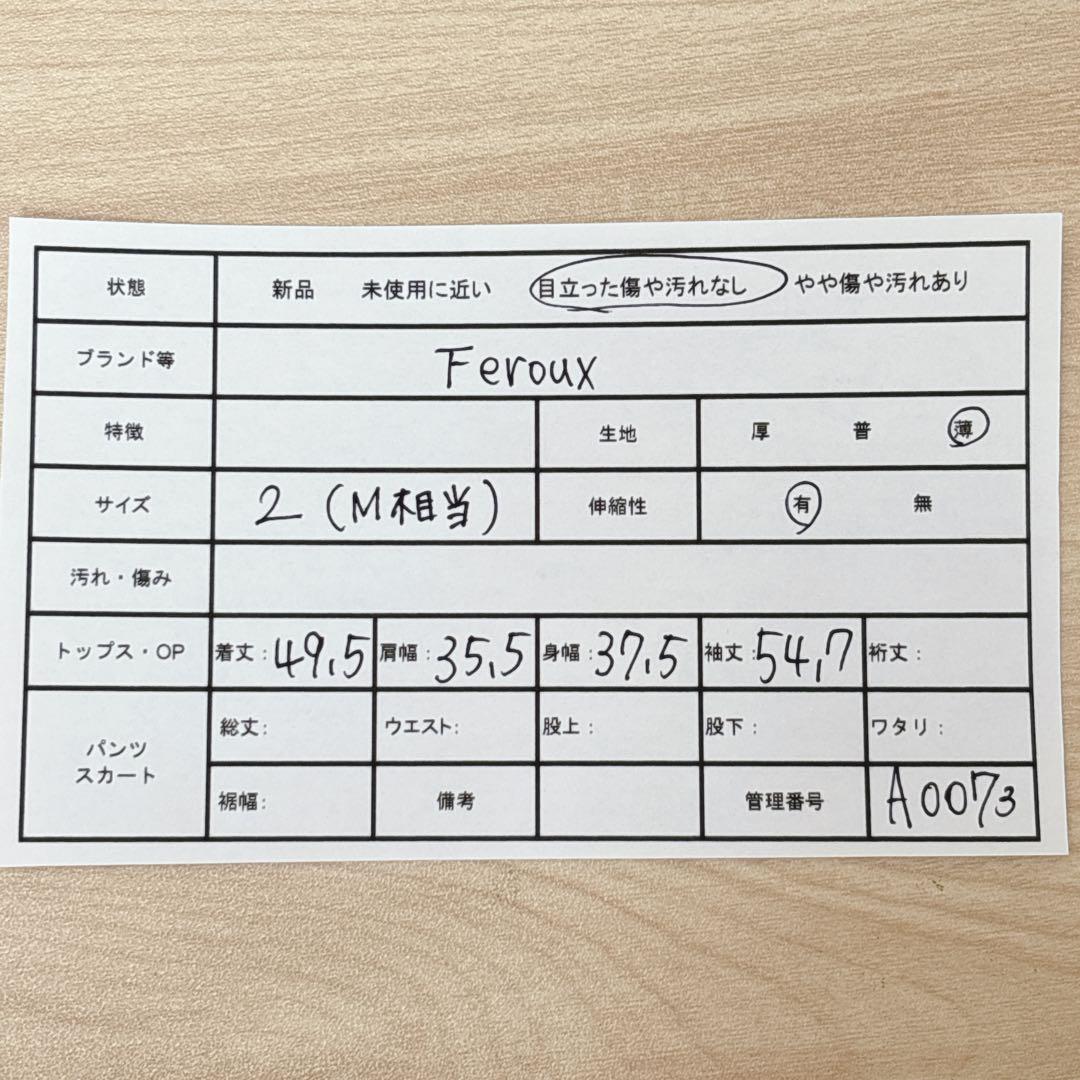 状態 新品 未使用に近い 目立った傷や汚れなし やや傷や汚れあり
ブランド等 Feroux
特徴 生地 厚 普 薄
サイズ 2 (M相当) 伸縮性 有 無
汚れ・傷み
トップス・OP 着丈:49.5 肩幅:35.5 身幅:37.5 袖丈:54.7 裄丈:
パンツ スカート 総丈: ウエスト: 股上: 股下: ワタリ:
裾幅: 備考 管理番号 A0073